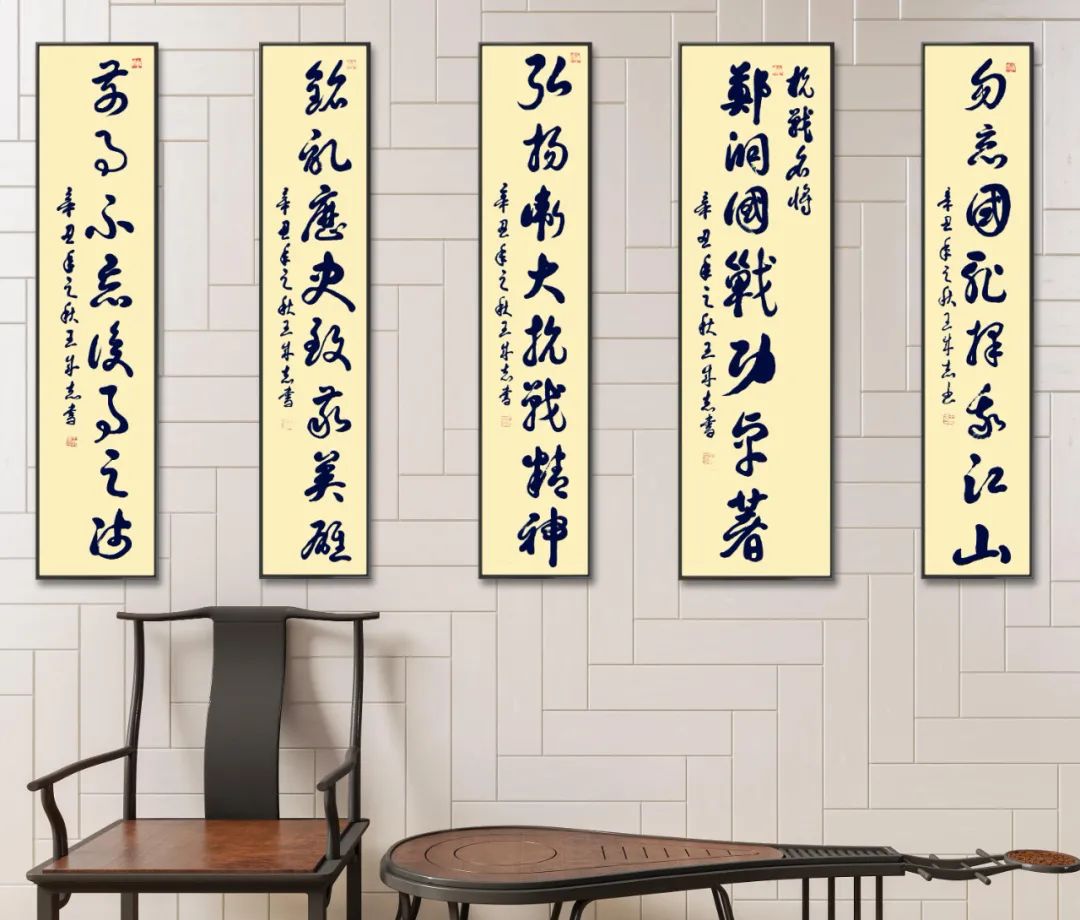 勿忘國耻捍我江山
辛丑年之秋王成志书
抗戰名将
鄭洞國戰功卓著
辛丑年之秋王成志書
弘扬偉大抗戰精神
辛丑年之秋王成志書
銘記歷史致敬英雄
辛丑年之秋王成志書
前事不忘後事之师
辛丑年之秋王成志書